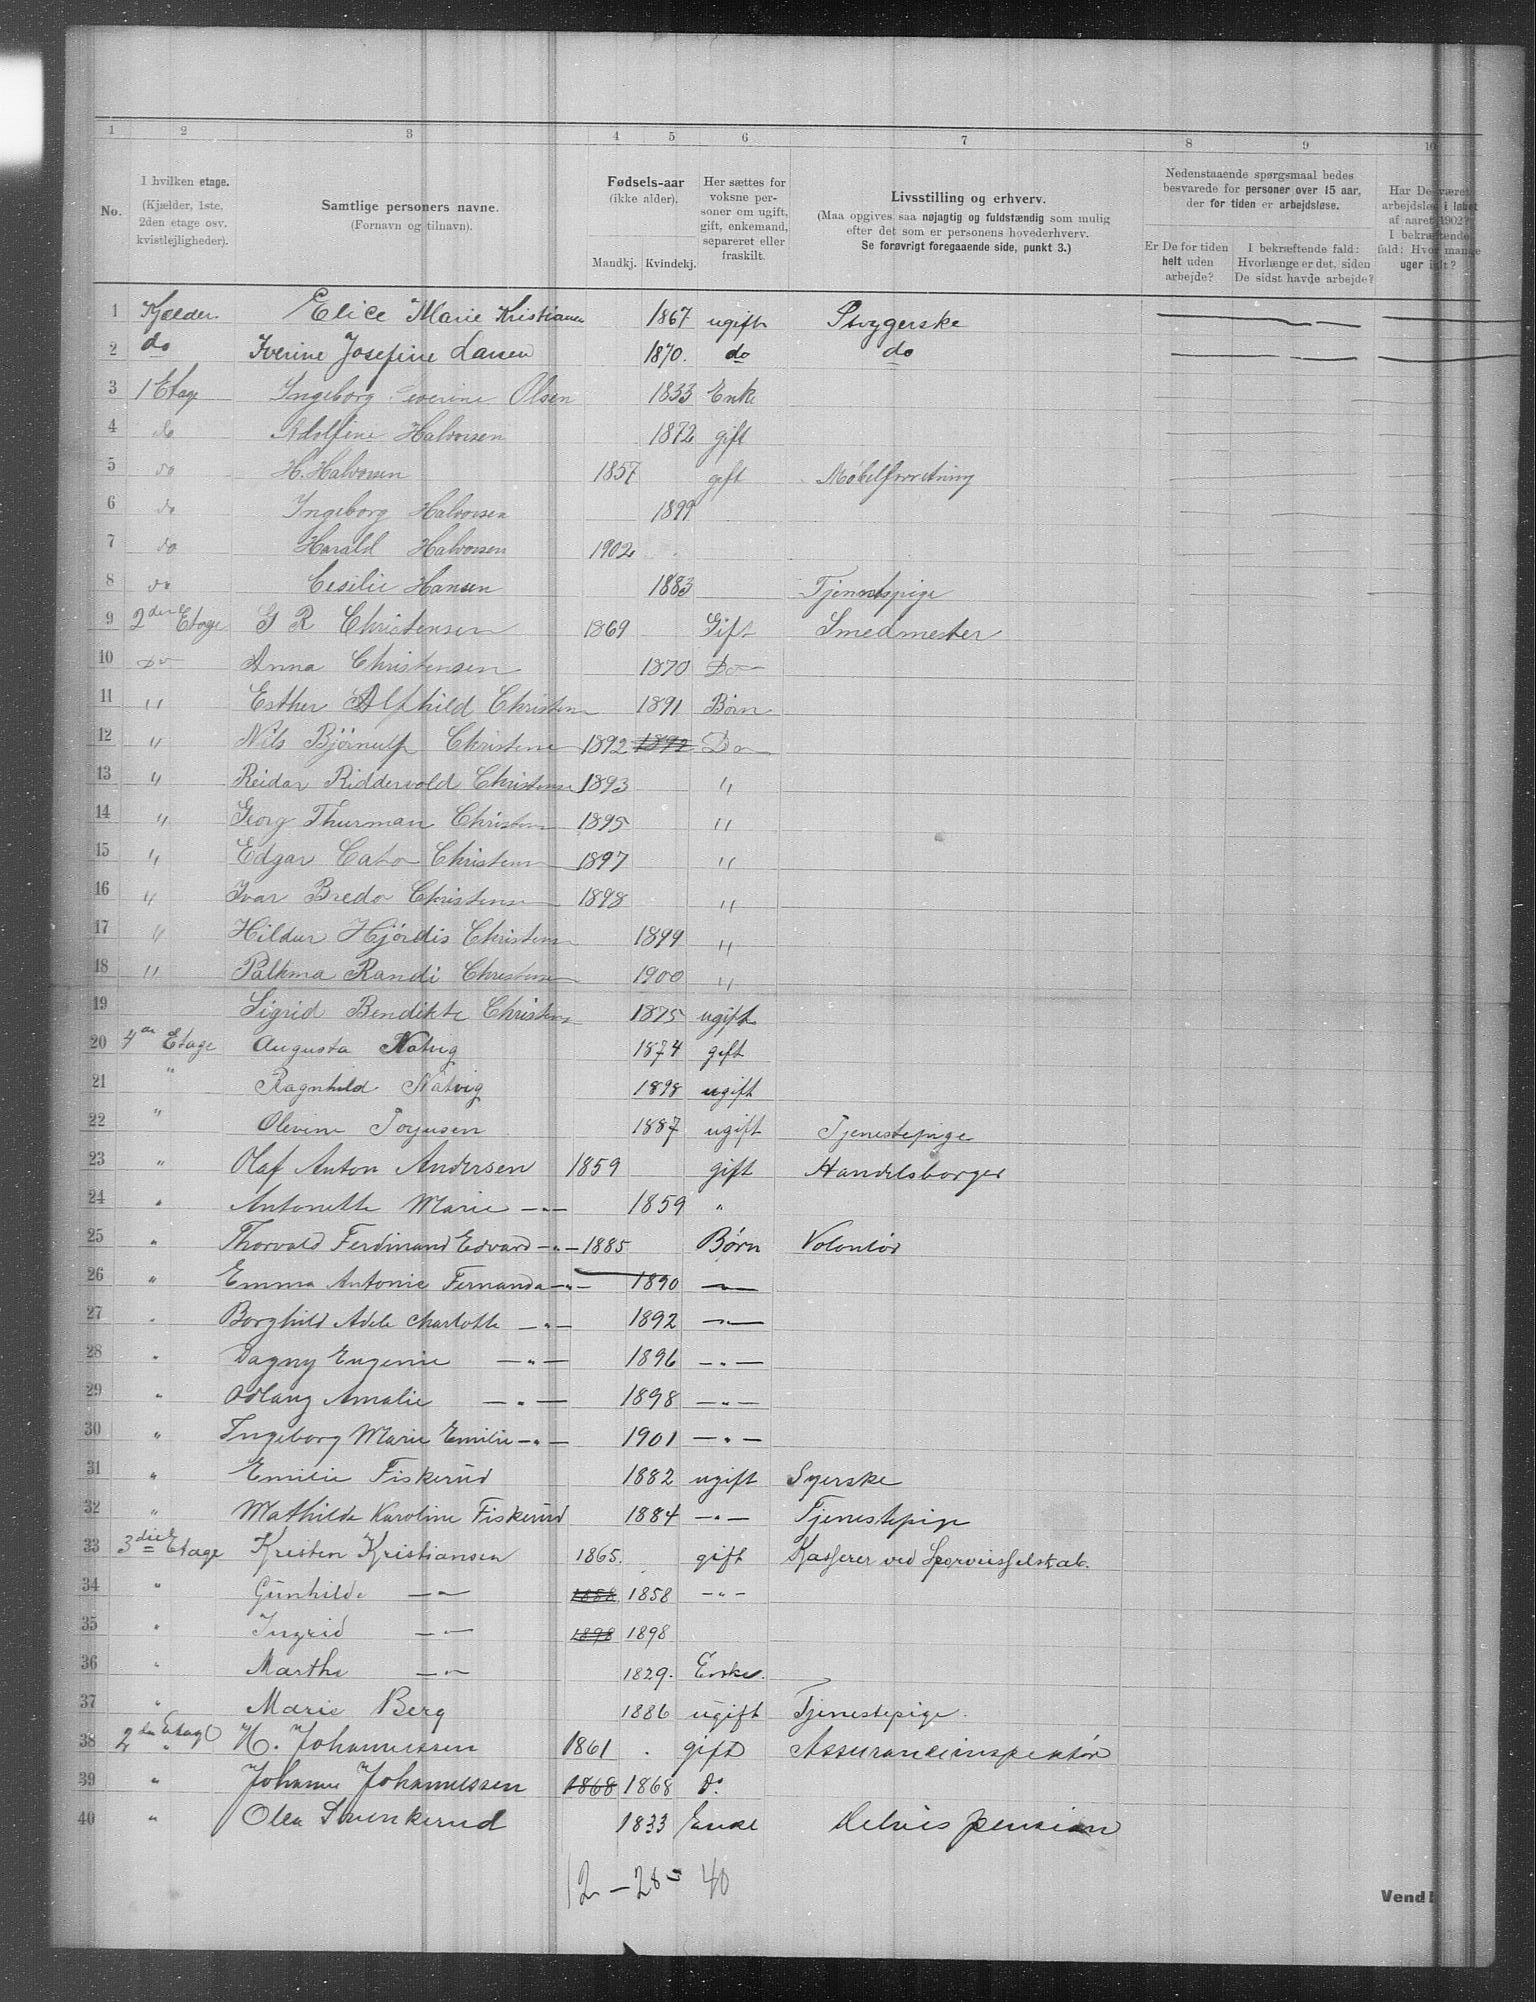 1 2 3 4 5 6 7 8 9 10
No. I hvilken etage. (Kjælder, 1ste, 2den etage osv. kvistlejligheder). Samtlige personers navne. (Fornavn og tilnavn). Fødsels-aar (ikke alder). Mandkj. Kvindekj. Her sættes for voksne personer om ugift, gift, enkemand, separeret eller fraskilt. Livsstilling og erhverv. (Maa opgives saa nøjagtig og fuldstændig som mulig efter det som er personens hovederhverv. Se forøvrigt foregaaende side, punkt 3.) Nedenstaaende spørgsmaal bedes besvarede for personer over 15 aar, der for tiden er arbejdsløse. Er De for tiden helt uden arbejde? I bekræftende fald: Hvorlænge er det, siden De sidst havde arbejde? Har De været arbejdsløs i løbet af aaret 1902? I bekræftende fald: Hvor mange uger ialt?
1 Kjælder Elice Marie Kristiansen 1867 ugift Strygerske
2 do Iverine Josefine Larsen 1870. do do
3 1 Etage Ingeborg Severine Olsen 1833 Enke
4 do Adolfine Halvorsen 1872 gift
5 do H. Halvorsen 1857 gift Møbelforretning
6 do Ingeborg Halvorsen 1899
7 do Harald Halvorsen 1902
8 do Cesilie Hansen 1883 Tjenestepige
9 2den Etage G R Christensen 1869 Gift Smedmester
10 Do Anna Christensen 1870 Do
11 " Esther Alfhild Christen 1891 Børn
12 " Nils Bjørnulf Christens 1892 1892 Do
13 " Reidar Riddervold Christens 1893 "
14 " Georg Thurman Christen 1895 "
15 " Edgar Cato Christens 1897 "
16 " Ivar Bredo Christens 1898 "
17 " Hildur Hjørdis Christens 1899 "
18 " Palma Randi Christens 1900 "
19 Sigrid Bendikte Christens 1875 ugift
20 4de Etage Augusta Natvig 1874 gift
21 " Ragnhild Natvig 1898 ugift
22 " Olevine Torjusen 1887 ugift Tjenestepige
23 " Olaf Anton Andersen 1859 gift Handelsborger
24 " Antonette Marie —"— 1859 "
25 " Thorvald Ferdinand Edvard —"— 1885 Børn Volontør
26 " Emma Antonie Fernanda —"— 1890 —"—
27 " Borghild Adele Charlotte —"— 1892 —"—
28 " Dagny Eugenie —"— 1896 —"—
29 " Odlaug Amalie —"— 1898 —"—
30 " Ingeborg Marie Emilie —"— 1901 —"—
31 " Emilie Fiskerud 1882 ugift Syerske
32 " Mathilde Karoline Fiskerud 1884 —"— Tjenestepige
33 3die Etage Kristen Kristiansen 1865. gift Kasserer ved Sporveisselskab.
34 " Gunhilde —"— 1858 1858 —"—
35 " Ingrid —"— 1898 1898
36 " Marthe —"— 1829. Enke.
37 " Marie Berg 1886 ugift Tjenestepige.
38 2den Etage " H. Johannessen 1861 gift Assuranceinspektør
39 " Johanne Johannessen 1868 1868 do
40 " Olea 1833 Enke Delvis pension
12 — 28 = 40
Vend!